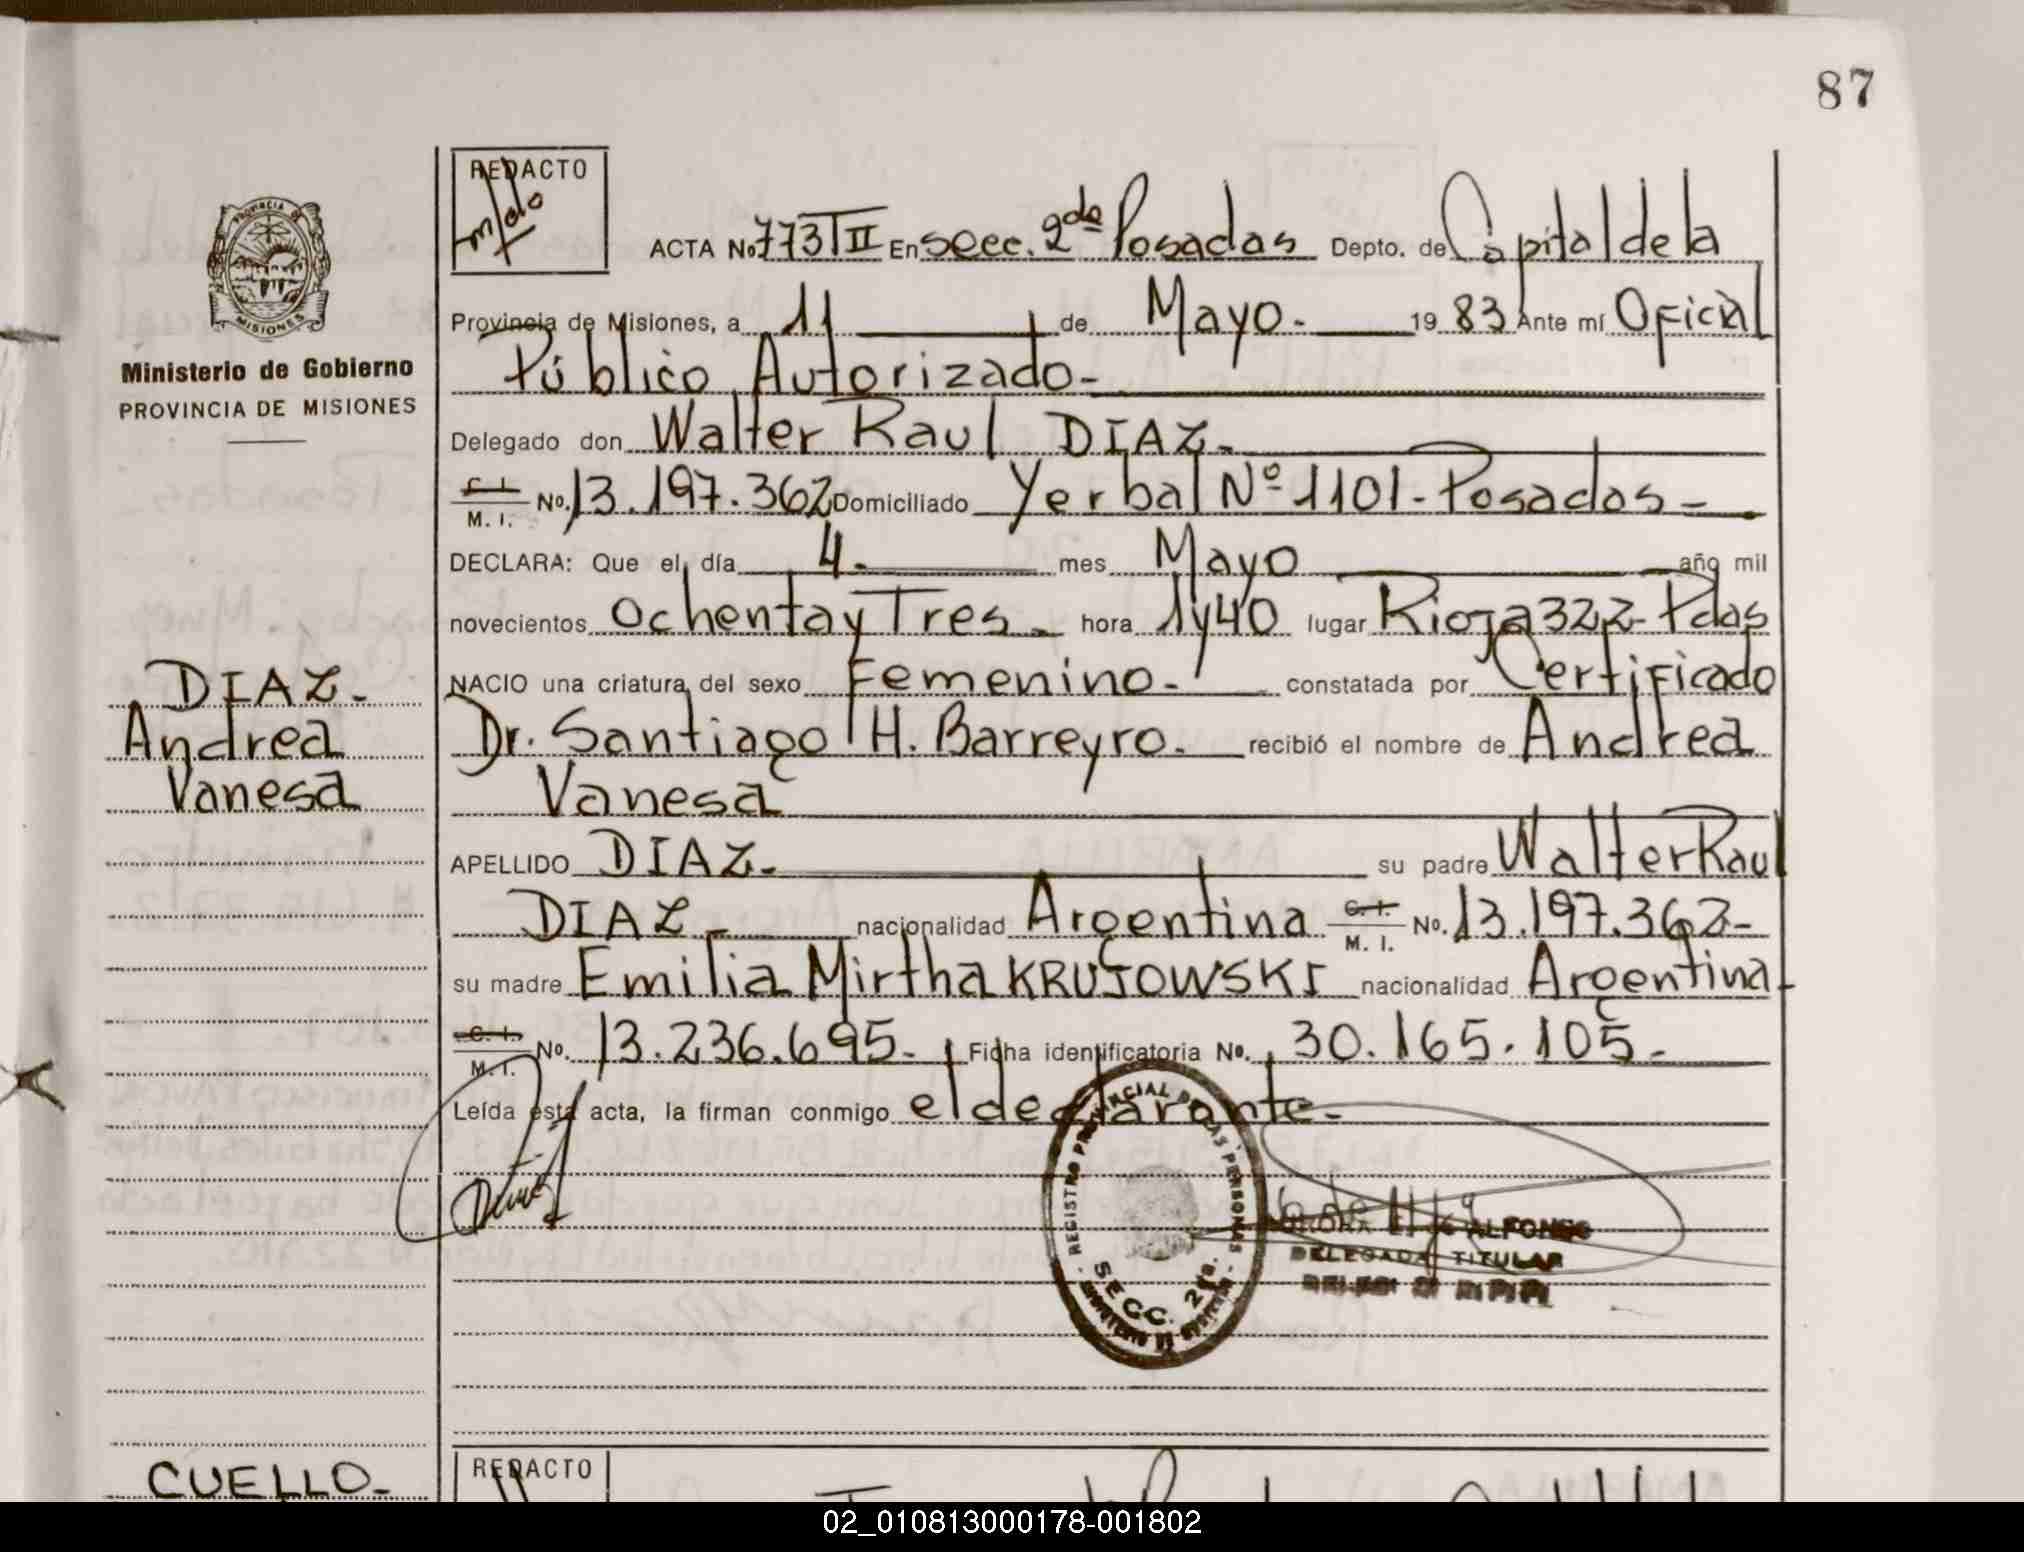 87
REDACTO
ACTA No. 773 T II En secc. 2da Posadas Depto. de Capital de la
PROVINCIA DE
MISIONES
Ministerio de Gobierno
PROVINCIA DE MISIONES
Provincia de Misiones, a 11 de Mayo. 1983 Ante mí Oficial
Público Autorizado-
Delegado don Walter Raul DIAZ-
C. I. M. I. No. 13.197.362 Domiciliado Yerbal Nº 1101-Posadas-
DECLARA: Que el día 4. mes Mayo año mil
novecientos ochenta y Tres- hora 1 y 40 lugar Rioja 322-Pdas
NACIO una criatura del sexo Femenino- constatada por Certificado
Dr. Santiago H. Barreyro- recibió el nombre de Andrea
Vanesa
DIAZ-
Andrea
Vanesa
APELLIDO DIAZ- su padre Walter Raul
DIAZ- nacionalidad Argentina C. I. M. I. No. 13.197.362-
su madre Emilia Mirtha KRUJOWSKI nacionalidad Argentina-
C. I. M. I. No. 13.236.695- Ficha identificatoria No. 30.165.105-
Leída esta acta, la firman conmigo el declarante-
REGISTRO PROVINCIAL DE LAS PERSONAS
SECC. 2da.
ALFONSO
DELEGADA TITULAR
CUELLO-
REDACTO
02_010813000178-001802